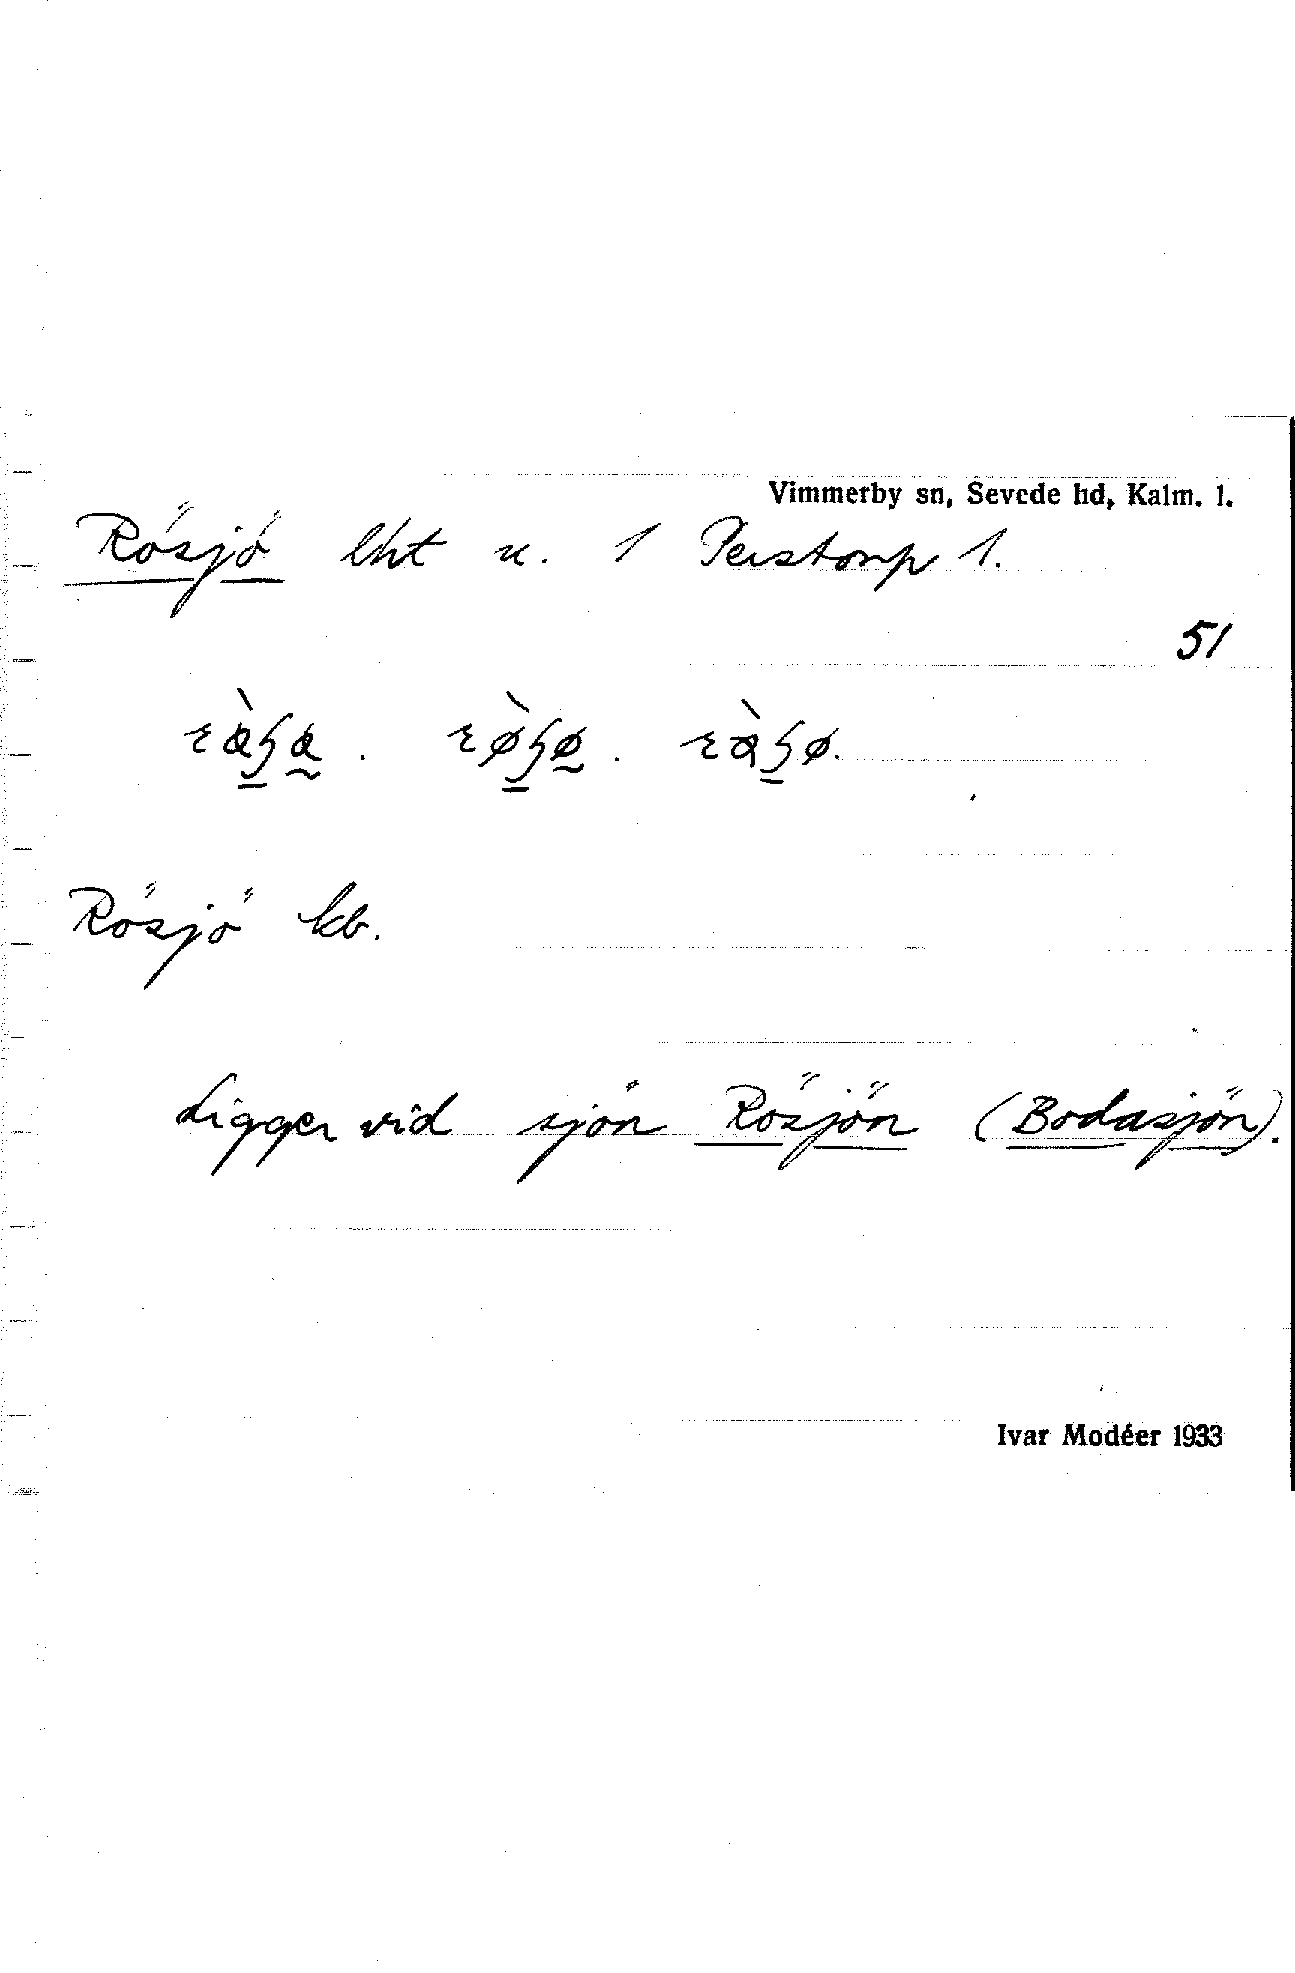 Vimmerby sn, Sevede hd, Kalm. l.
Rösjö lht u. 1 Perstorp 1.
51
Rösjö kb.
Ligger vid sjön Rösjön (Bodasjön).
Ivar Modéer 1933